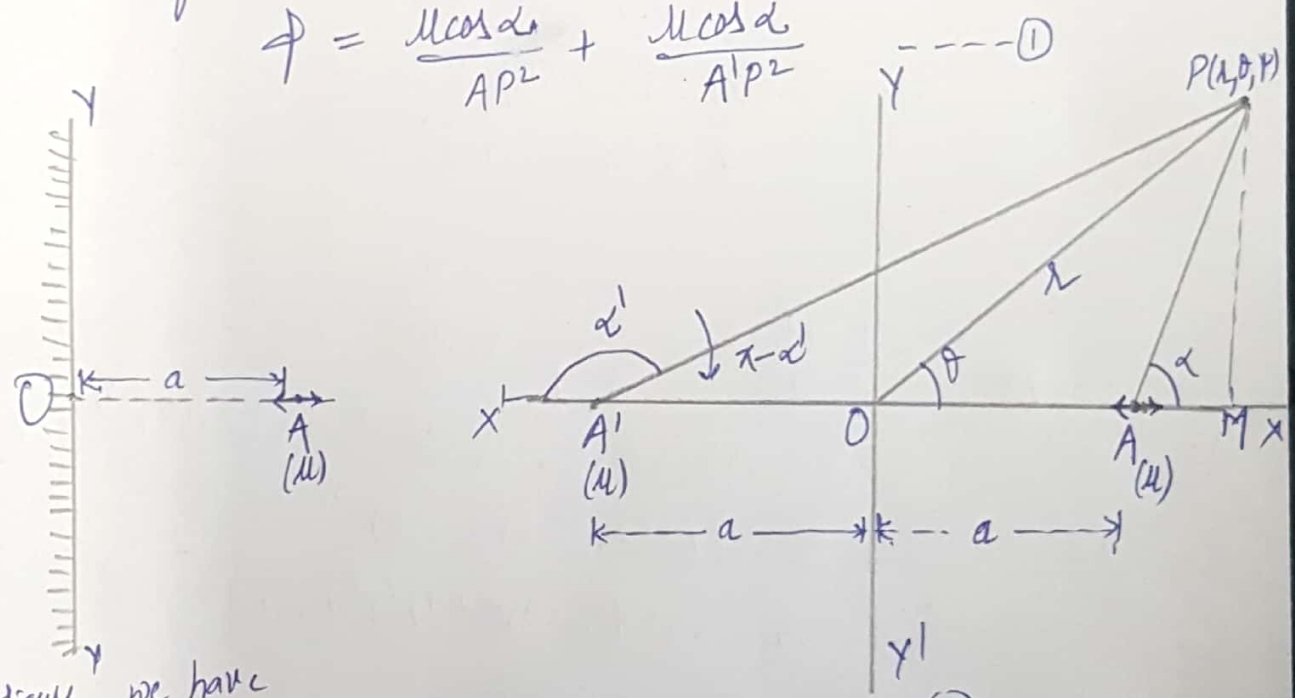 φ = μcosα / AP² + μcosα / A'P² ----①
Y
Y
P(r,θ,ψ)
O
a
A
(μ)
Y
α'
π-α'
r
θ
α
X'
A'
(μ)
O
A
(μ)
M
X
a
a
Y'
we have